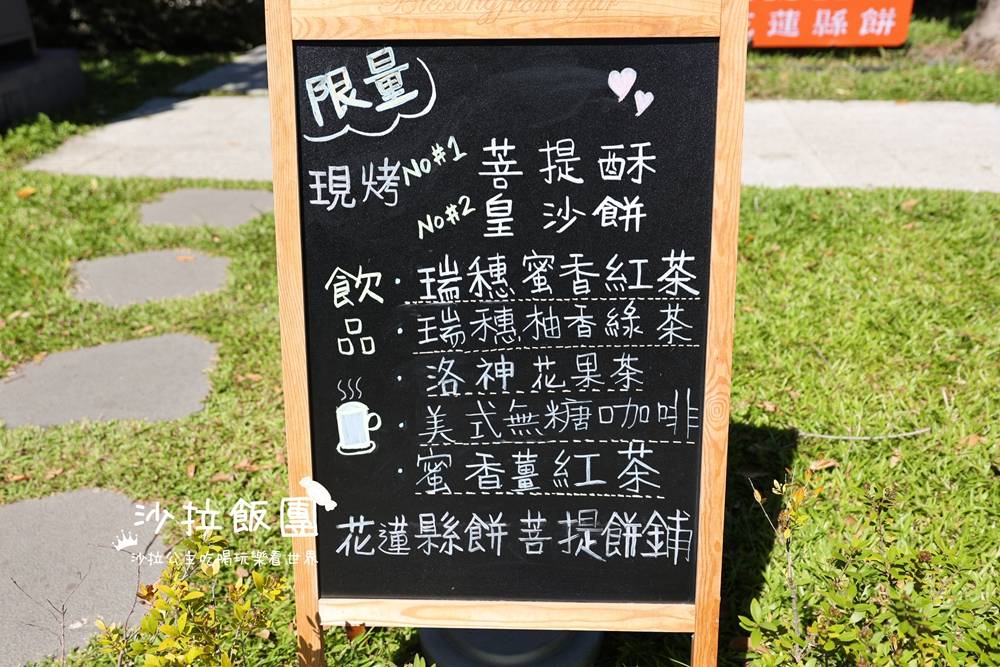 Blessing from afar
蓮縣餅
限量
現烤 No#1 菩提酥
No#2 皇沙餅
飲品
·瑞穗蜜香紅茶
·瑞穗柚香綠茶
·洛神花果茶
·美式無糖咖啡
·蜜香薑紅茶
花蓮縣餅菩提餅鋪
沙拉飯團
沙拉公主吃喝玩樂看世界